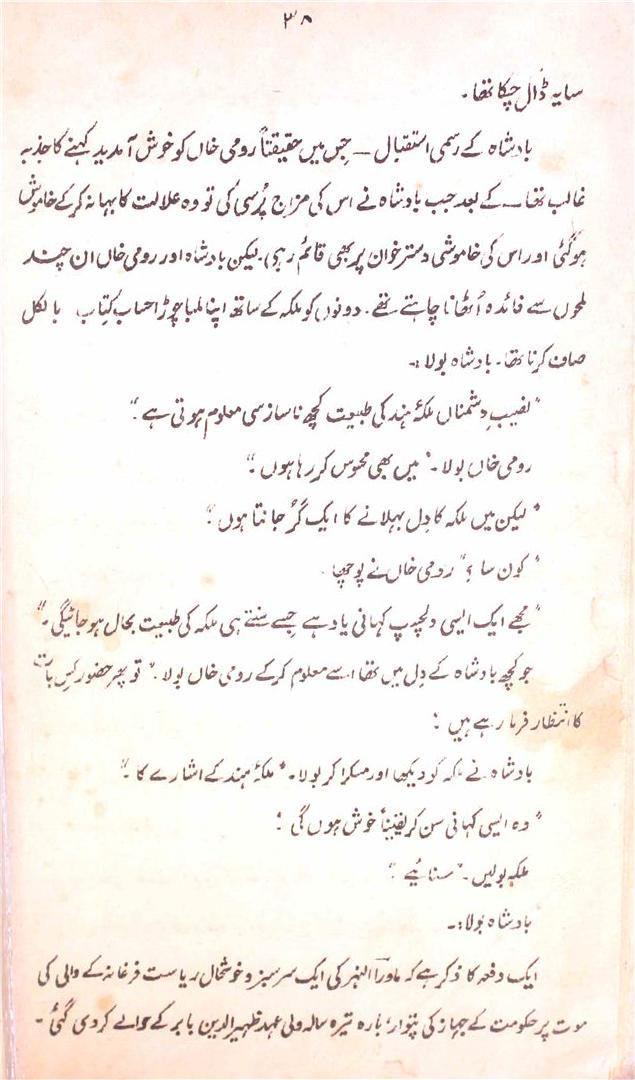 ۳۸
سایہ ڈال چکا تھا۔
بادشاہ کے رسمی استقبال — جس میں حقیقتاً رومی خاں کو خوش آمدید کہنے کا جذبہ
غالب تھا — کے بعد جب بادشاہ نے اس کی مزاج پُرسی کی تو وہ علالت کا بہانہ کر کے خاموش
ہو گئی اور اس کی خاموشی دستر خوان پر بھی قائم رہی۔ لیکن بادشاہ اور رومی خاں ان چند
لمحوں سے فائدہ اُٹھانا چاہتے تھے۔ دونوں کو ملکہ کے ساتھ اپنا لمبا چوڑا حساب کتاب بالکل
صاف کرنا تھا۔ بادشاہ بولا:۔
"نصیبِ دشمناں ملکۂ ہند کی طبیعت کچھ ناساز سی معلوم ہوتی ہے۔"
رومی خاں بولا۔ "میں بھی محسوس کر رہا ہوں۔"
"لیکن میں ملکہ کا دِل بہلانے کا ایک گُر جانتا ہوں"
"کون سا؟" رومی خاں نے پوچھا
"مجھے ایک ایسی دلچسپ کہانی یاد ہے جسے سنتے ہی ملکہ کی طبیعت بحال ہو جائیگی۔"
جو کچھ بادشاہ کے دِل میں تھا اسے معلوم کر کے رومی خاں بولا۔ "تو پھر حضور کس بات
کا انتظار فرما رہے ہیں"
بادشاہ نے ملکہ کو دیکھا اور مسکرا کر بولا۔ "ملکۂ ہند کے اشارے کا۔"
"وہ ایسی کہانی سن کر یقیناً خوش ہوں گی"
ملکہ بولیں۔ "سنائیے"
بادشاہ بولا:۔
ایک دفعہ کا ذکر ہے کہ ماورأ النہر کی ایک سرسبز و خوشحال ریاست فرغانہ کے والی کی
موت پر حکومت کے جہاز کی پتوار بارہ تیرہ سالہ ولی عہد ظہیر الدین بابر کے حوالے کر دی گئی۔